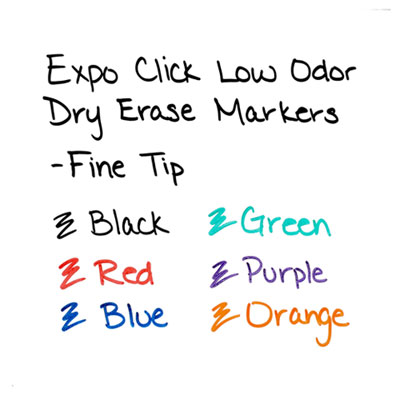 Expo Click Low Odor
Dry Erase Markers
-Fine Tip
Black Green
Red Purple
Blue Orange